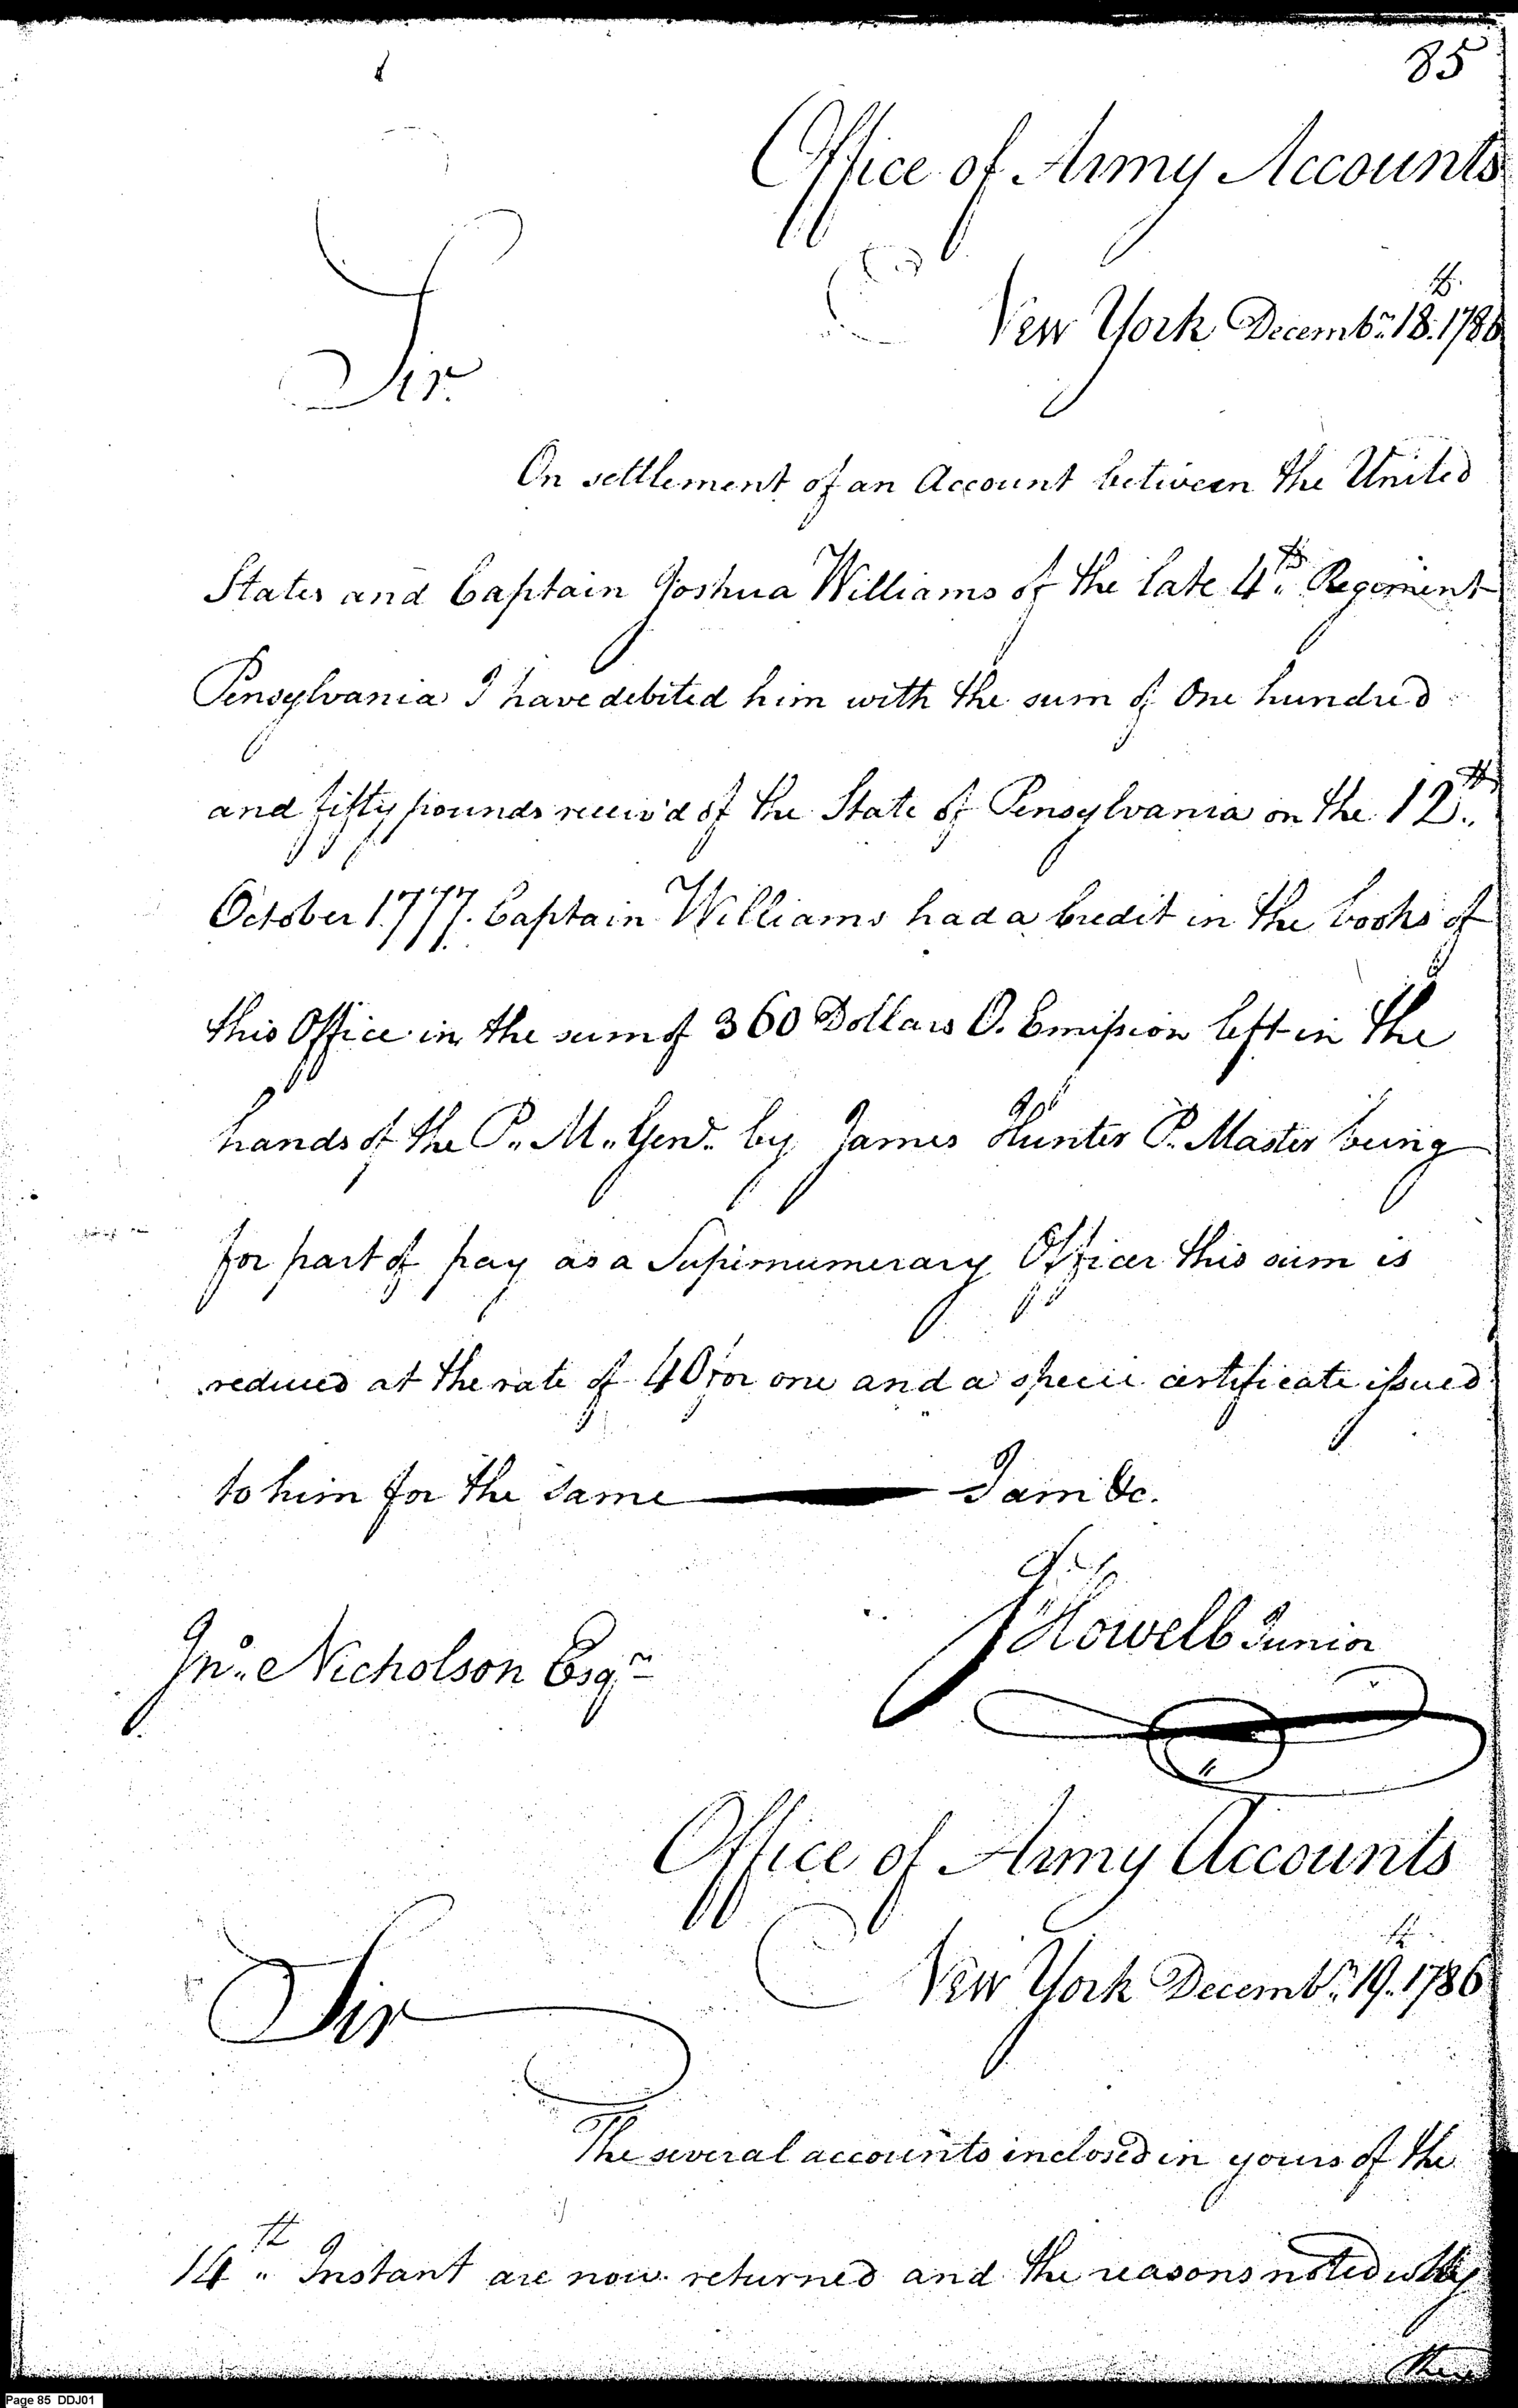 85
Office of Army Accounts
New York Decembr. 18th. 1786
Sir
On settlement of an Account between the United
States and Captain Joshua Williams of the late 4th. Regiment
Pensylvania I have debited him with the sum of One hundred
and fifty pounds receiv'd of the State of Pensylvania on the 12th.
October 1777. Captain Williams had a Credit in the books of
this Office in the sum of 360 Dollars O. Emission left in the
hands of the P. M. Genl. by James Hunter P. Master being
for part of pay as a Supernumerary Officer this sum is
reduced at the rate of 40 for one and a specie certificate issued
to him for the same — I am &c.
J Howell Junior
Jno. Nicholson Esqr.
Office of Army Accounts
New York Decembr. 19th. 1786
Sir
The several accounts inclosed in yours of the
14th. Instant are now returned and the reasons noted why
they
Page 85 DDJ01